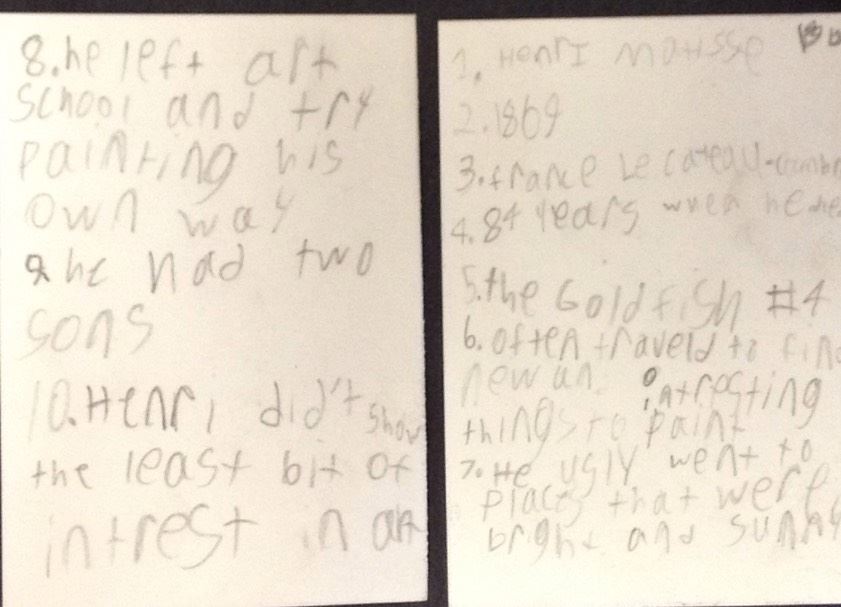 8.he left art
School and try
painting his
own way
9 he had two
sons
10.Henri did't show
the least bit of
intrest in art
1. Henri Matisse
2.1869
3.france Le cateau-
4.84 years when he
5.the Goldfish #4
6.often traveld to fin
new an intresting
things to paint
7.He ugly went to
places that were
bright and sunny